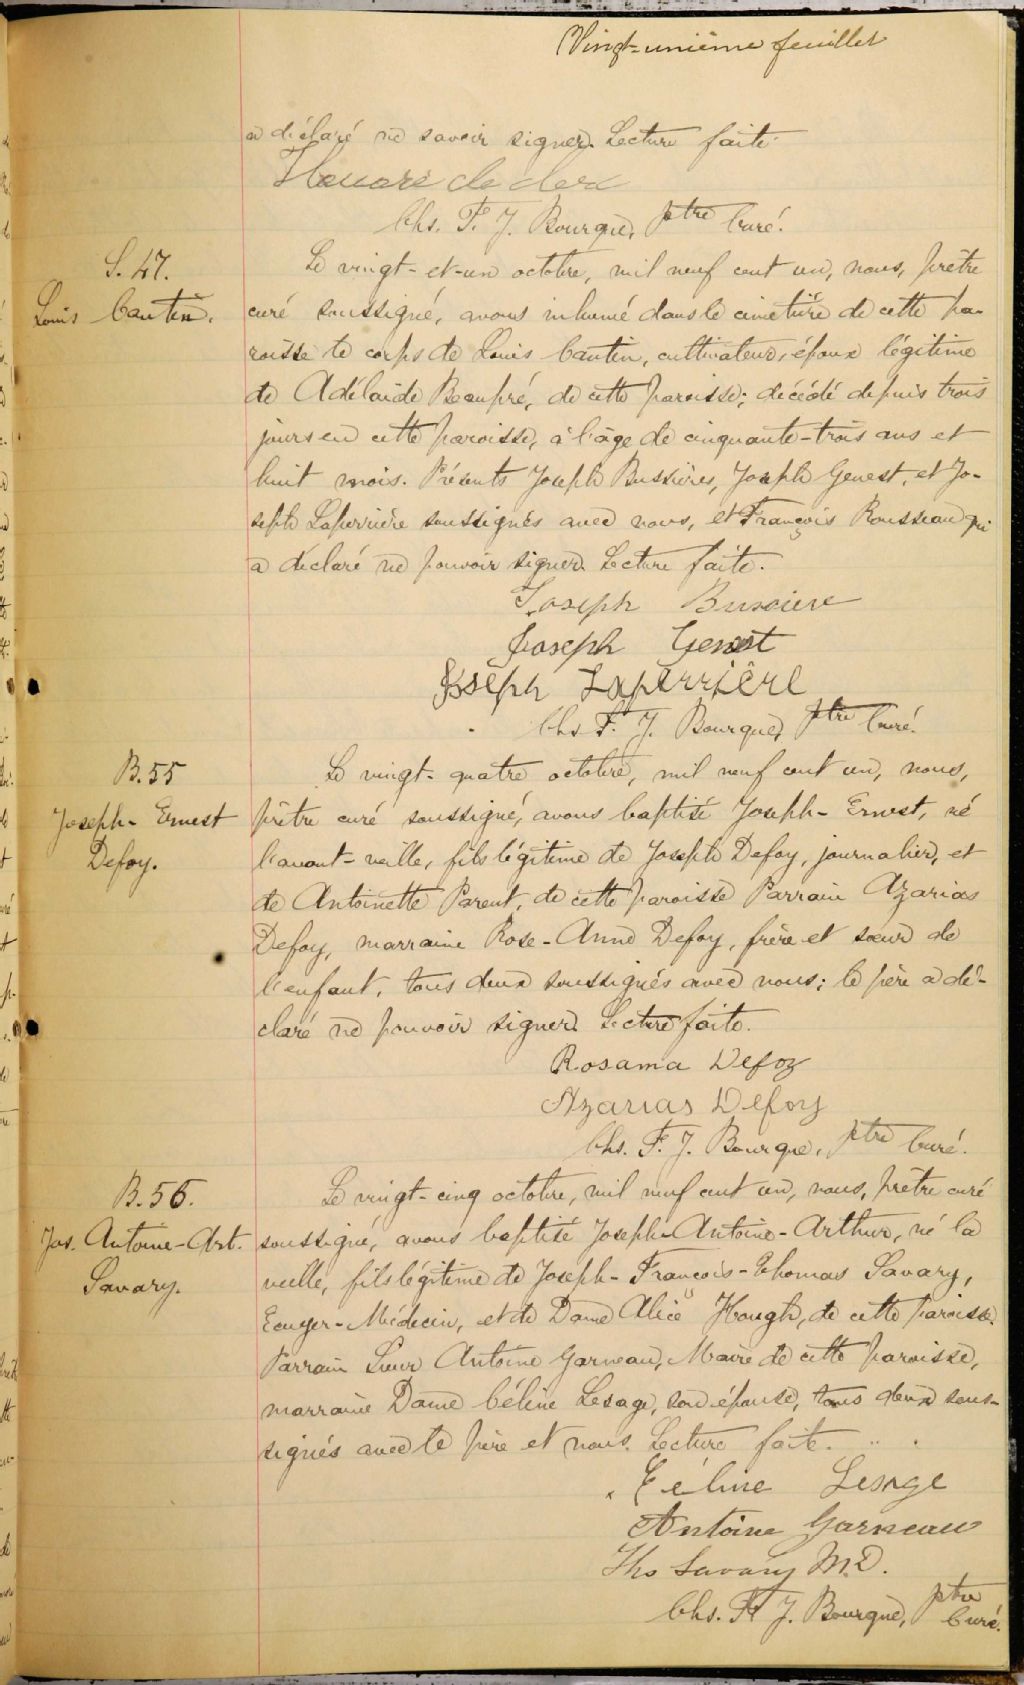 Vingt-unième feuillet
a déclaré ne savoir signer. Lecture faite.
Honoré Leclerc
Chs. F. J. Bourque, Ptre Curé.
S. 47.
Louis Cantin.
Le vingt-et-un octobre, mil neuf cent un, nous, prêtre
curé soussigné, avons inhumé dans le cimetière de cette pa-
roisse le corps de Louis Cantin, cultivateur, époux légitime
de Adélaide Beaupré, de cette paroisse; décédé depuis trois
jours en cette paroisse, à l'âge de cinquante-trois ans et
huit mois. Présents Joseph Bussières, Joseph Genest, et Jo-
seph Laperrière soussignés avec nous, et François Rousseau qui
a déclaré ne pouvoir signer. Lecture faite.
Joseph Bussiere
Joseph Genest
Joseph Laperrière
Chs F. J. Bourque, Ptre Curé.
B. 55
Joseph-Ernest
Defoy.
Le vingt-quatre octobre, mil neuf cent un, nous,
prêtre curé soussigné, avons baptisé Joseph-Ernest, né
l'avant-veille, fils légitime de Joseph Defoy, journalier, et
de Antoinette Parent, de cette paroisse Parrain Azarias
Defoy, marraine Rose-Anna Defoy, frère et sœur de
l'enfant, tous deux soussignés avec nous; le père a dé-
claré ne pouvoir signer. Lecture faite.
Rosama Defoy
Azarias Defoy
Chs. F. J. Bourque, Ptre Curé.
B. 56.
Jos. Antoine-Art.
Savary.
Le vingt-cinq octobre, mil neuf cent un, nous, prêtre curé
soussigné, avons baptisé Joseph-Antoine-Arthur, né la
veille, fils légitime de Joseph-François-Thomas Savary,
Ecuyer-Médecin, et de Dame Alice Hough, de cette paroisse.
Parrain Sieur Antoine Garneau, Maire de cette paroisse,
marraine Dame Céline Lesage, son épouse, tous deux sous-
signés avec le père et nous. Lecture faite.
Céline Lesage
Antoine Garneau
Ths Savary M.D.
Chs. F. J. Bourque, Ptre Curé.